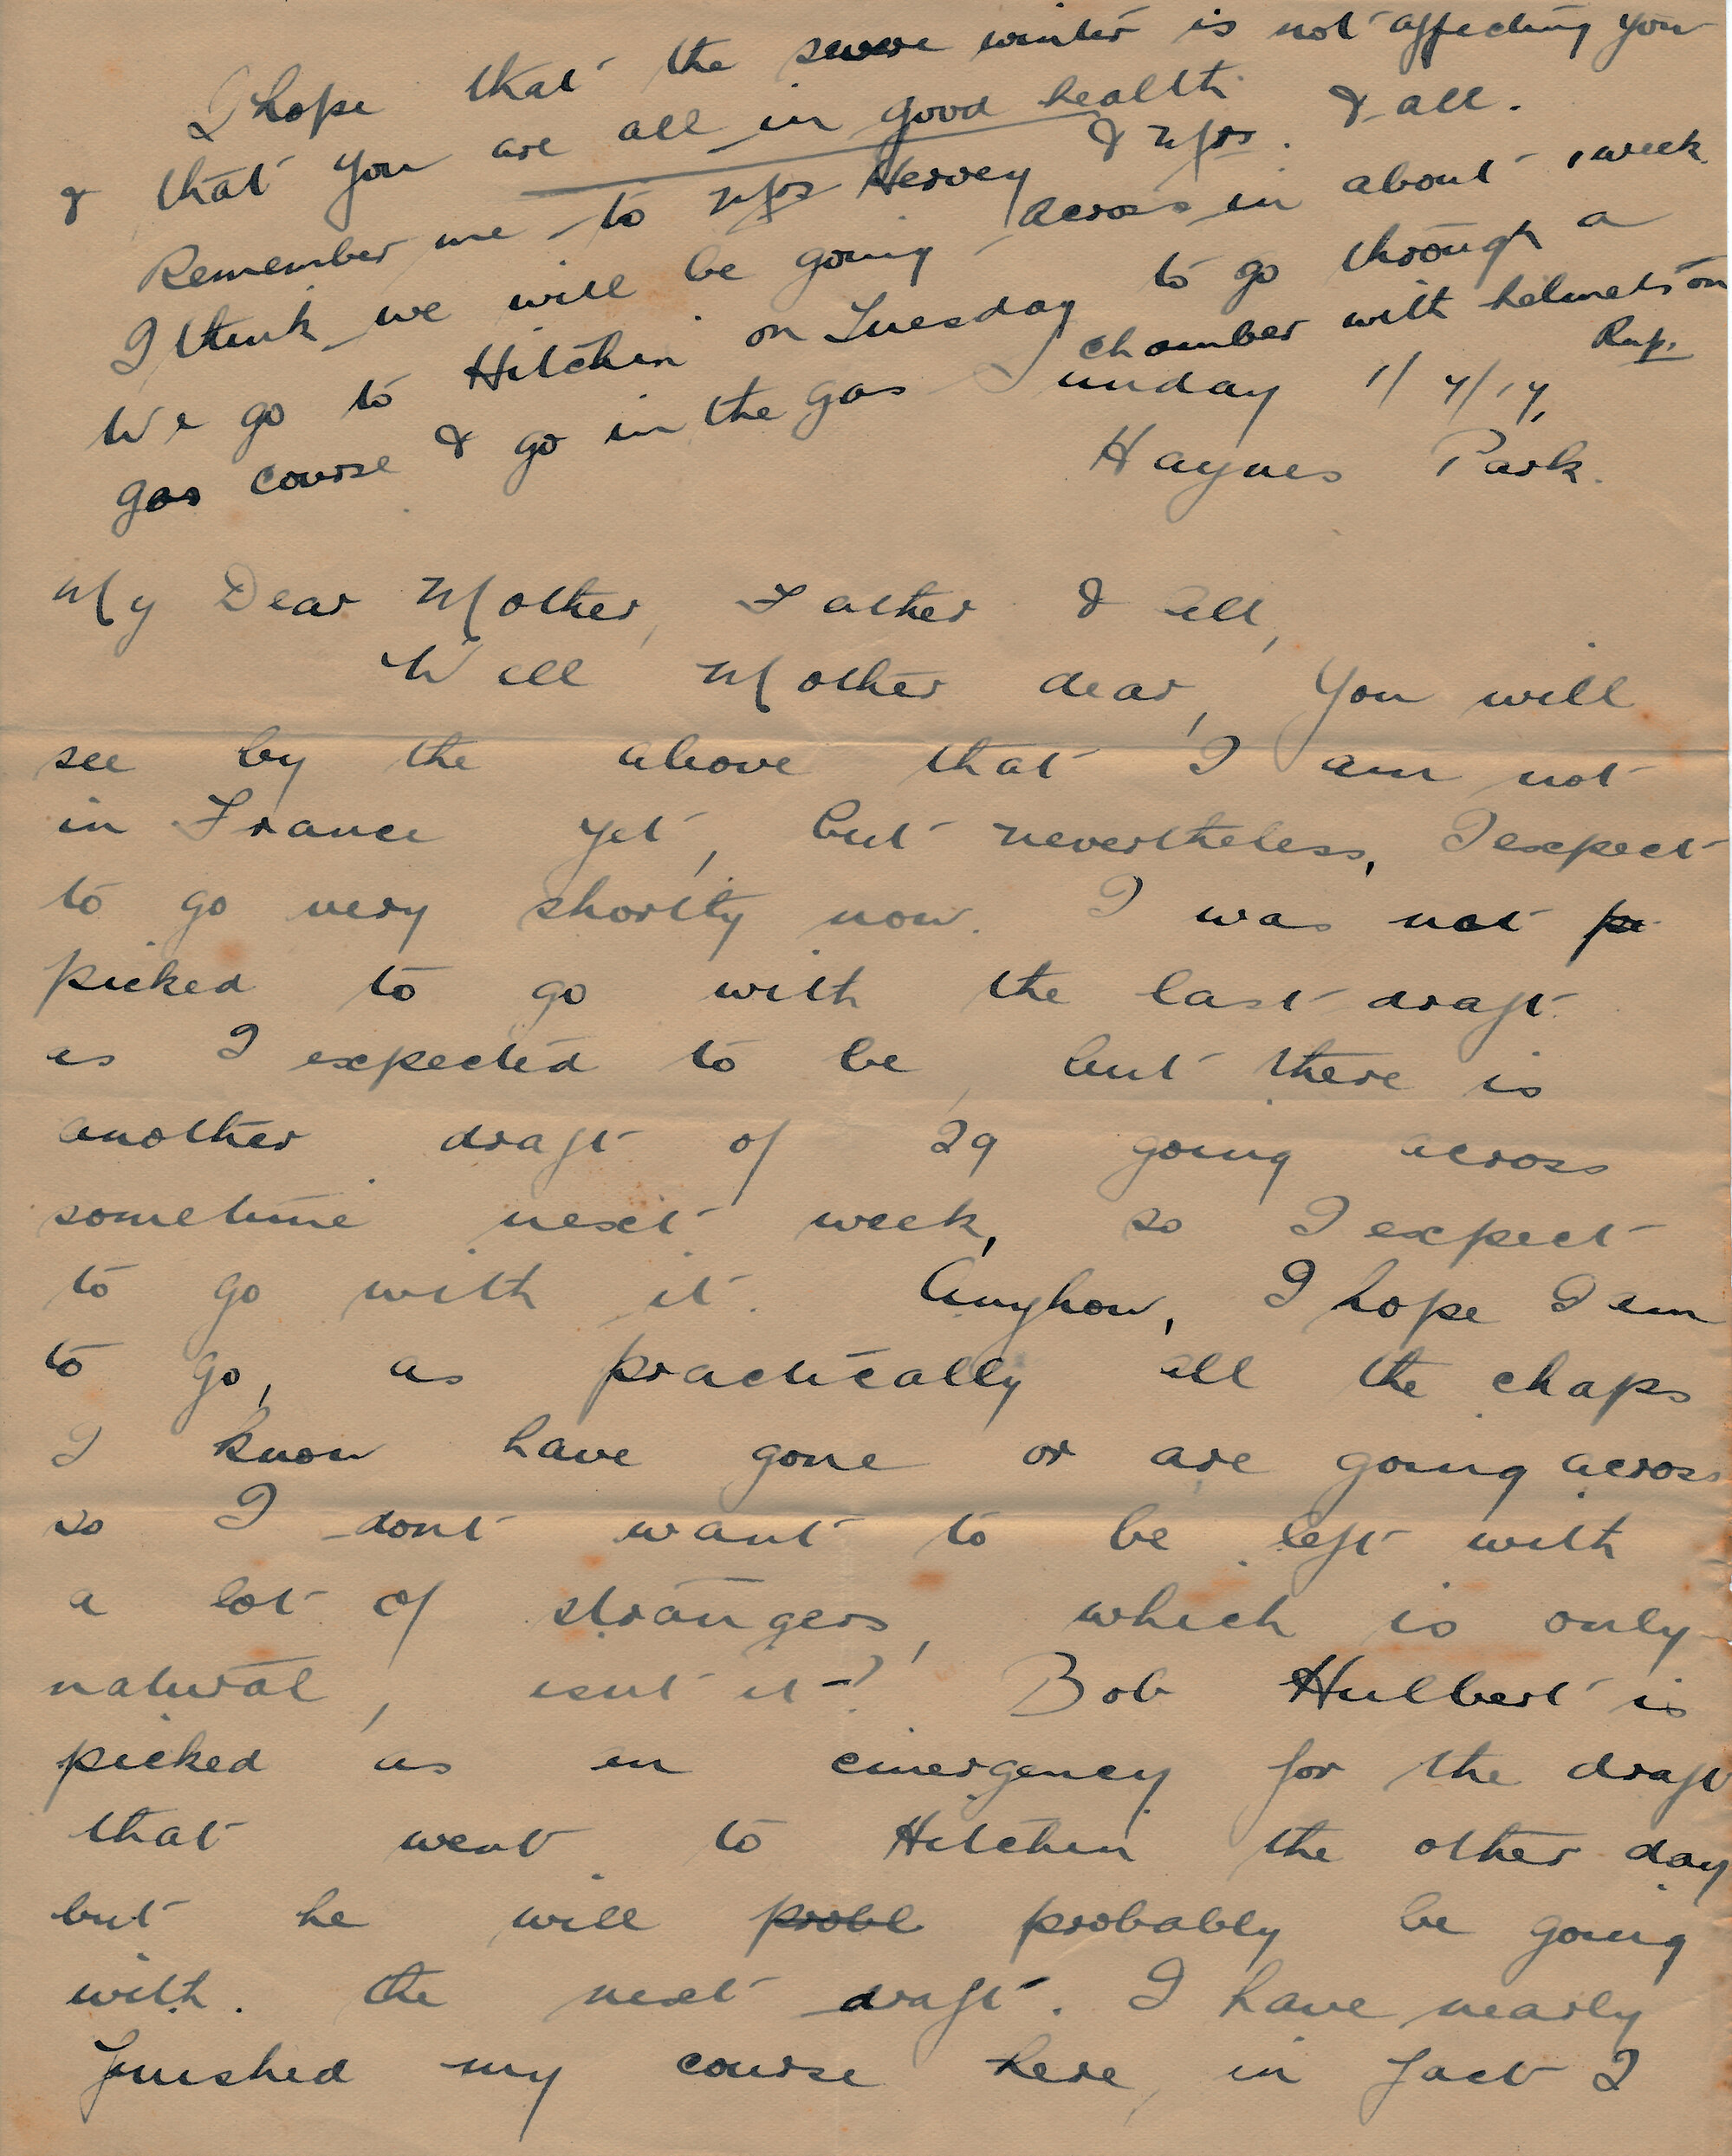 I hope that the severe winter is not affecting you
& that you are all in good health & all.
Remember me to Mrs Hervey & Mrs.
I think we will be going across in about 1 week
We go to Hitchin on Tuesday to go through a
gas course & go in the gas chamber with helmets on
Rup.
Sunday 1/7/17,
Haynes Park.
My Dear Mother, Father & all,
Well Mother dear, you will
see by the above that I am not
in France yet, but nevertheless, I expect
to go very shortly now. I was not pi
picked to go with the last draft
as I expected to be, but there is
another draft of 29 going across
sometime next week, so I expect
to go with it. Anyhow, I hope I am
to go, as practically all the chaps
I know have gone or are going across
so I dont want to be left with
a lot of strangers, which is only
natural, isnt it? Bob Hulbert is
picked as an emergency for the draft
that went to Hitchin the other day
but he will probl probably be going
with. the next draft. I have nearly
finished my course here, in fact I